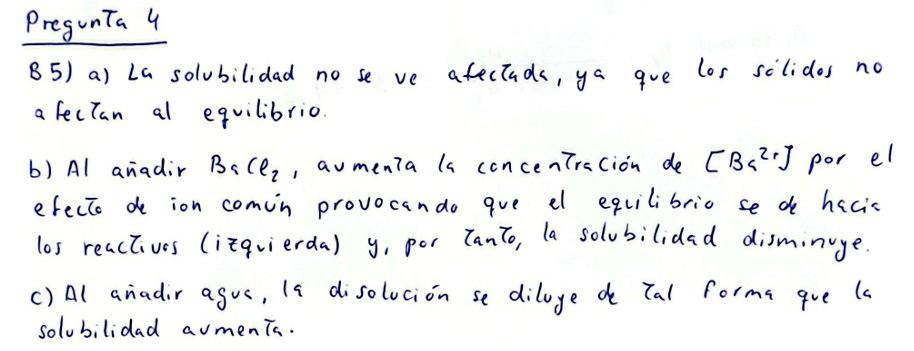 Pregunta 4
B5) a) La solubilidad no se ve afectada, ya que los sólidos no
afectan al equilibrio.
b) Al añadir BaCl₂, aumenta la concentración de [Ba²⁺] por el
efecto de ion común provocando que el equilibrio se de hacia
los reactivos (izquierda) y, por tanto, la solubilidad disminuye.
c) Al añadir agua, la disolución se diluye de tal forma que la
solubilidad aumenta.